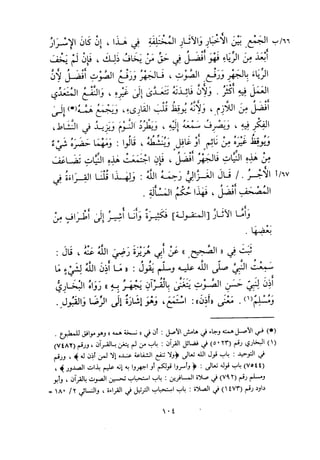 ٦٦/ب الجمع بين الأخبار والآثار المختلفة في هذا، إن كان الإسرار
أبعد من الرياء فهو أفضل في حق من يخاف ذلك، فإن لم يخف
الرياء بالجهر ورفع الصوت، فالجهر ورفع الصوت أفضل لأن
العمل فيه أكثر. ولأن فائدته تتعدى إلى غيره، والنفع المتعدي
أفضل من اللازم. ولأنه يوقظ قلب القارىء، ويجمع همه(*) إلى
الفكر فيه، ويصرف سمعه إليه، ويطرد النوم ويزيد في النشاط،
ويوقظ غيره من نائم أو غافل وينشطه. قالوا: ومهما حضره شيء
من هذه النيات فالجهر أفضل، فإن اجتمعت هذه النيات تضاعف
١/٦٧ الأجر. / قال الغزالي رحمه الله: ولهذا قلنا القراءة في
المصحف أفضل، فهذا حكم المسألة.
وأما الآثار [المنقولة] فكثيرة وأنا أشير إلى أطراف من
بعضها.
ثبت في «الصحيح» عن أبي هريرة رضي الله عنه، قال:
سمعت النبي صلى الله عليه وسلم يقول: «ما أذن الله لشيء ما
أذن لنبي حسن الصوت يتغنى بالقرآن يجهر به» رواه البخاري
ومسلم(١). معنى «أذن»: استمع، وهو إشارة إلى الرضا والقبول.
(*) في الأصل همته وجاء في هامش الأصل: أن في «نسخة همه» وهو موافق للمطبوع.
(١) البخاري رقم (٥٠٢٣) في فضائل القرآن: باب من لم يتغن بالقرآن، ورقم (٧٤٨٢)
في التوحيد: باب قول الله تعالى ﴿ولا تنفع الشفاعة عنده إلا لمن أذن له﴾، ورقم
(٧٥٤٤) باب قوله تعالى: ﴿وأسروا قولكم أو اجهروا به إنه عليم بذات الصدور﴾،
ومسلم رقم (٧٩٢) في صلاة المسافرين: باب استحباب تحسين الصوت بالقرآن، وأبو
داود رقم (١٤٧٣) في الصلاة: باب استحباب الترتيل في القراءة، والنسائي ٢/١٨٠ =
١٠٤